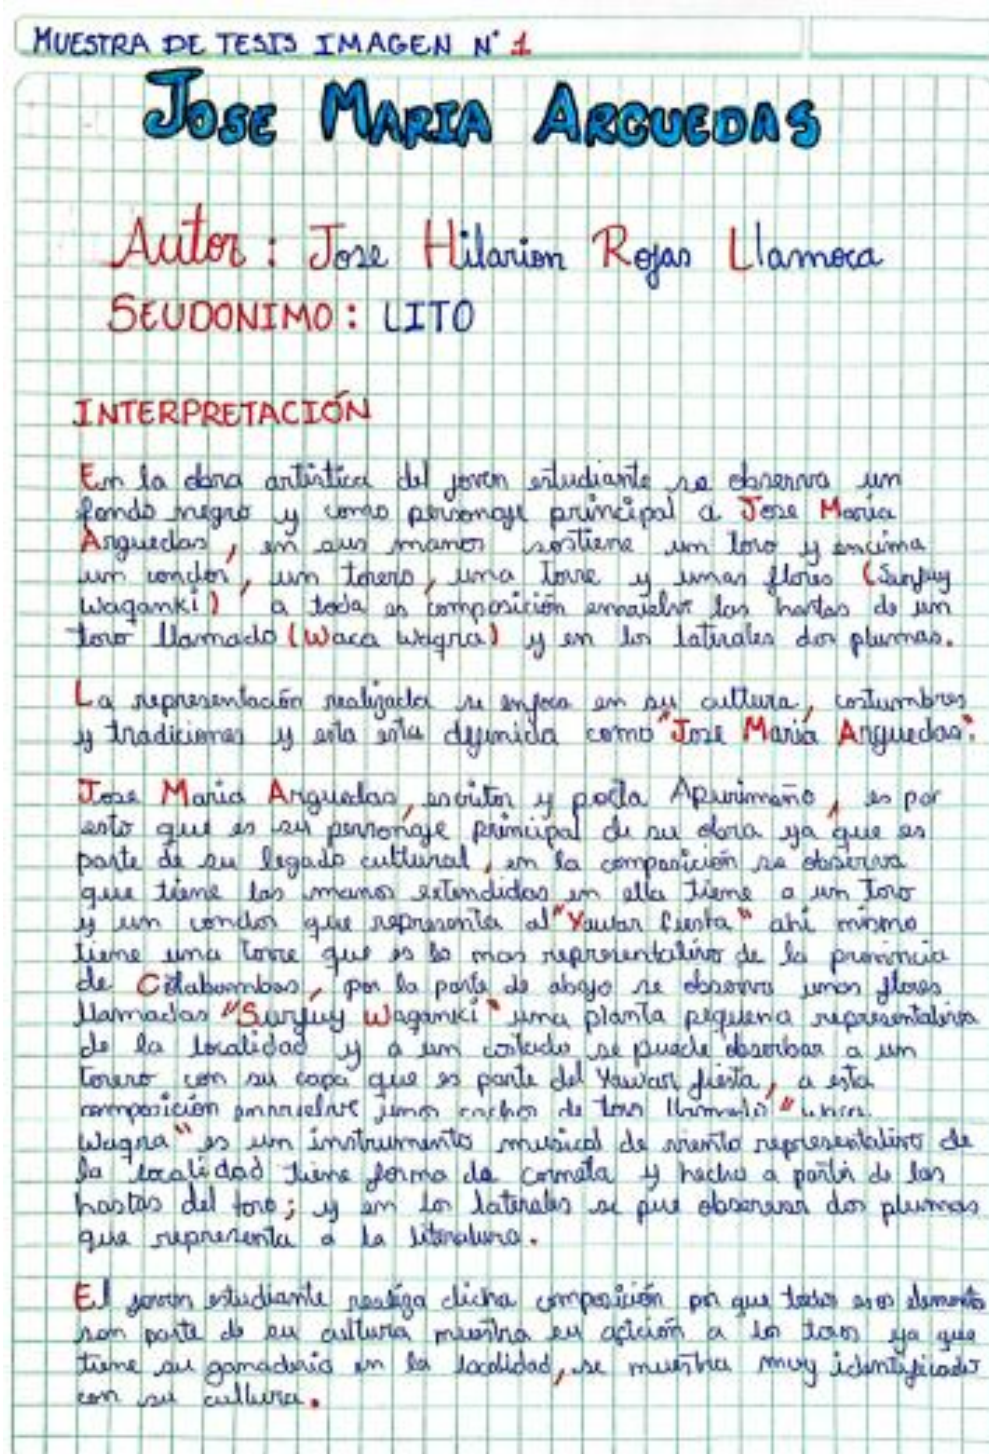 MUESTRA DE TESIS IMAGEN N° 1
JOSE MARIA ARGUEDAS
Autor : Jose Hilarion Rojas Llamoca
SEUDONIMO : LITO
INTERPRETACIÓN
En la obra artistica del joven estudiante se observa un
fondo negro y como personaje principal a Jose Maria
Arguedas, en sus manos sostiene un toro y encima
un condor, un torero, una torre y unas flores (Surfuy
Waganki) a toda es composición envuelve las hastas de un
toro llamado (Waca Wagra) y en los laterales dos plumas.
La representación realizada se enfoca en su cultura, costumbres
y tradiciones y esta esta definida como "Jose Maria Arguedas".
Jose Maria Arguedas, escritor y poeta Apurimeño, es por
esto que es su personaje principal de su obra ya que es
parte de su legado cultural, en la composición se observa
que tiene las manos extendidas en ella tiene a un Toro
y un condor que representa al "Yawar fiesta" ahi mismo
tiene una torre que es lo mas representativo de la provincia
de Cotabambas, por la parte de abajo se observa unas flores
llamadas "Surfuy Waganki" una planta pequeña representativa
de la localidad y a un costado se puede observar a un
torero con su capa que es parte del Yawar fiesta, a esta
composición envuelve unos cachos de toro llamado "Waca
Wagra" es un instrumento musical de viento representativo de
la localidad tiene forma de corneta y hecho a partir de las
hastas del toro; y en los laterales se pue observar dos plumas
que representa a la literatura.
El joven estudiante realiza dicha composición por que todos esos elementos
son parte de su cultura muestra su afición a los toros ya que
tiene su ganaderia en la localidad, se muestra muy identificado
con su cultura.